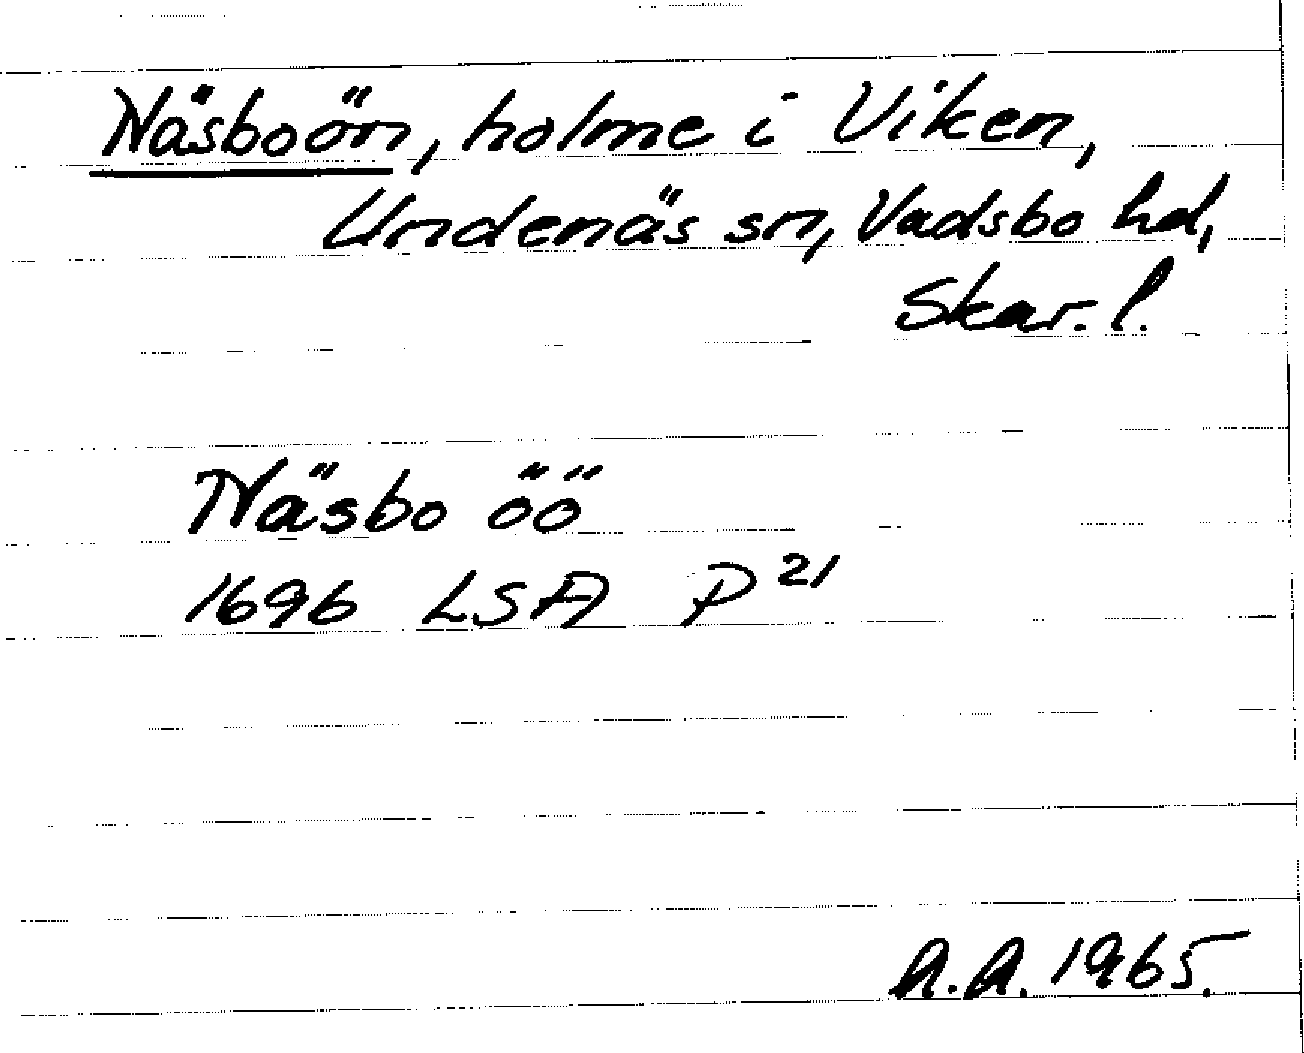 Näsboön, holme i Viken,
Undenäs sn, Vadsbo hd,
Skar. l.
Näsbo öö
1696 LSA P²¹
A.A. 1965.